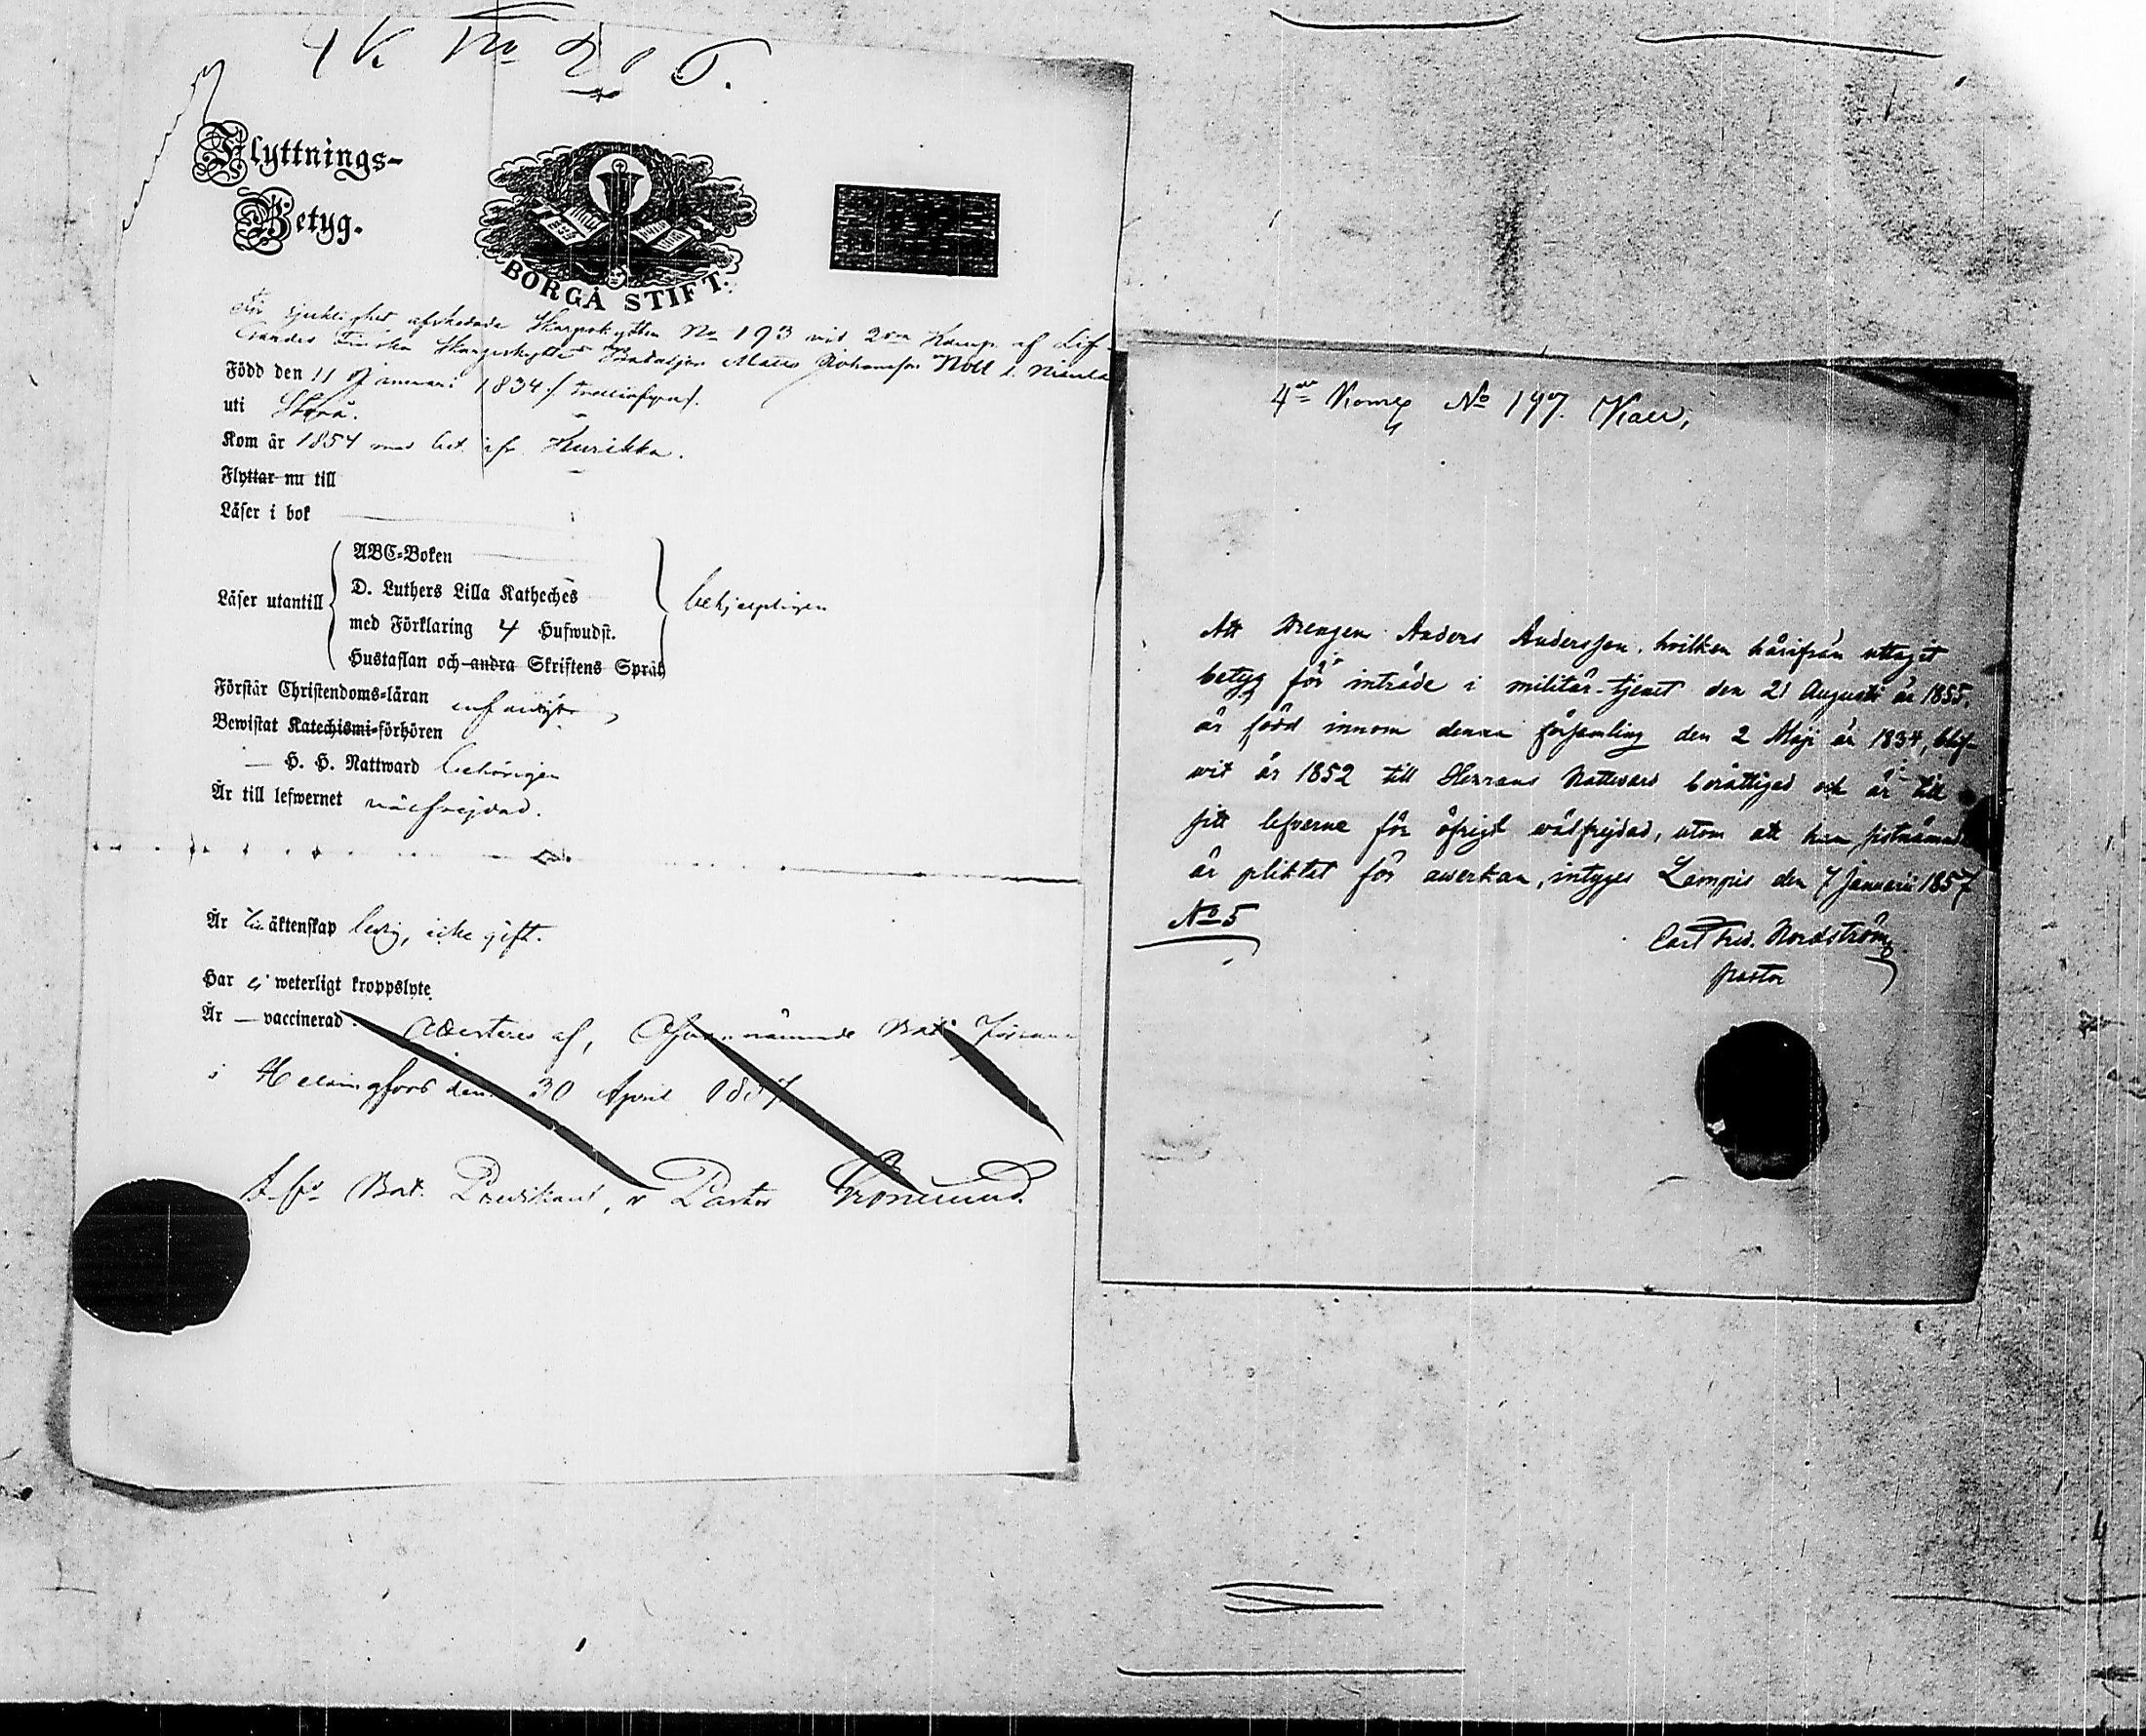 4 K. No 206.
Flyttnings-
Betyg.
BORGÅ STIFT.
för sjuklighet afskedade Skarpskytten No 193 vid 2dra Komp. af Lif-
Gardes Finska Skarpskytte Bataljon Matts Johansson
Född den 11 Januari 1834
uti
Kom år 1854 med bet. ifr.
Flyttar nu till
Läser i bok
Läser utantill
ABC-Boken
D. Luthers Lilla Kateches
med Förklaring 4 Hufwudst.
Hustaflan och andra Skriftens Språk
behjelpligen
Förstår Christendoms-läran enfaldigt
Bewistat Katechismi-förhören
— H. H. Nattward behörigen
Är till lefwernet välfrejdad.
Är till äktenskap ledig, icke gift.
Har ej weterligt kroppslyte.
Är — vaccinerad.
Attesteras af, Ofvannämnde Bat.
i Helsingfors den 30 April 1857
Bat. Predikant, v Pastor
4de Komp No 197. Kall,
Att drengen Anders Andersson, hvilken härifrån uttagit
betyg för inträde i militär-tjenst den 21 Augusti år 1855,
är född innom denna församling den 2 Maji år 1834, blif-
wit år 1852 till Herrans Nattvard berättigad och är till
sitt lefverne för öfrigt wälfrejdad, utom att han sistnämnde
år pliktat för åwerkan, intygas Lampis den 7 Januarii 1857
No 5
Carl Fred. Nordström
pastor